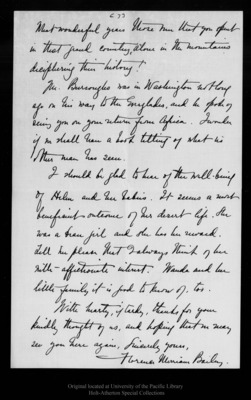 Most wonderful years those were that you spent
in that grand country, alone in the mountains
deciphering their history!
Mr. Burroughs was in Washington not long
ago on his way to the Everglades, and he spoke of
seeing you on your return from Africa. I wonder
if we shall have a book telling of what no
other man has seen.
I should be glad to hear of the well-being
of Helen and her babies. It seems a most
beneficent outcome of her desert life. She
was a brave girl and she has her reward.
Tell her please that I always think of her
with affectionate interest. Wanda and her
little family, it is good to know of, too.
With hearty, if tardy, thanks for your
kindly thought of us, and hoping that we may
see you here again, Sincerely yours,
Florence Merriam Bailey.
Original located at University of the Pacific Library
Holt-Atherton Special Collections